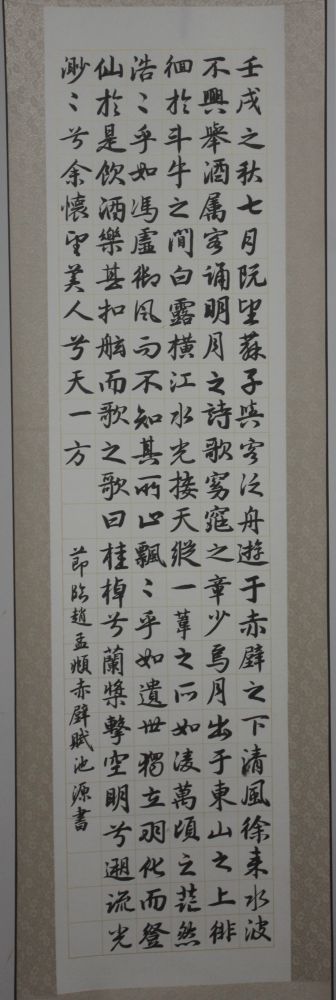 壬戌之秋七月既望蘇子與客泛舟遊于赤壁之下清風徐来水波
不興舉酒属客誦明月之詩歌窈窕之章少焉月出于東山之上徘
徊於斗牛之間白露横江水光接天縱一葦之所如凌萬頃之茫然
浩〻乎如馮虚御風而不知其所止飄〻乎如遺世獨立羽化而登
仙於是飲酒樂甚扣舷而歌之歌曰桂棹兮蘭槳擊空明兮遡流光
渺〻兮余懷望美人兮天一方
節臨趙孟頫赤壁賦池源書